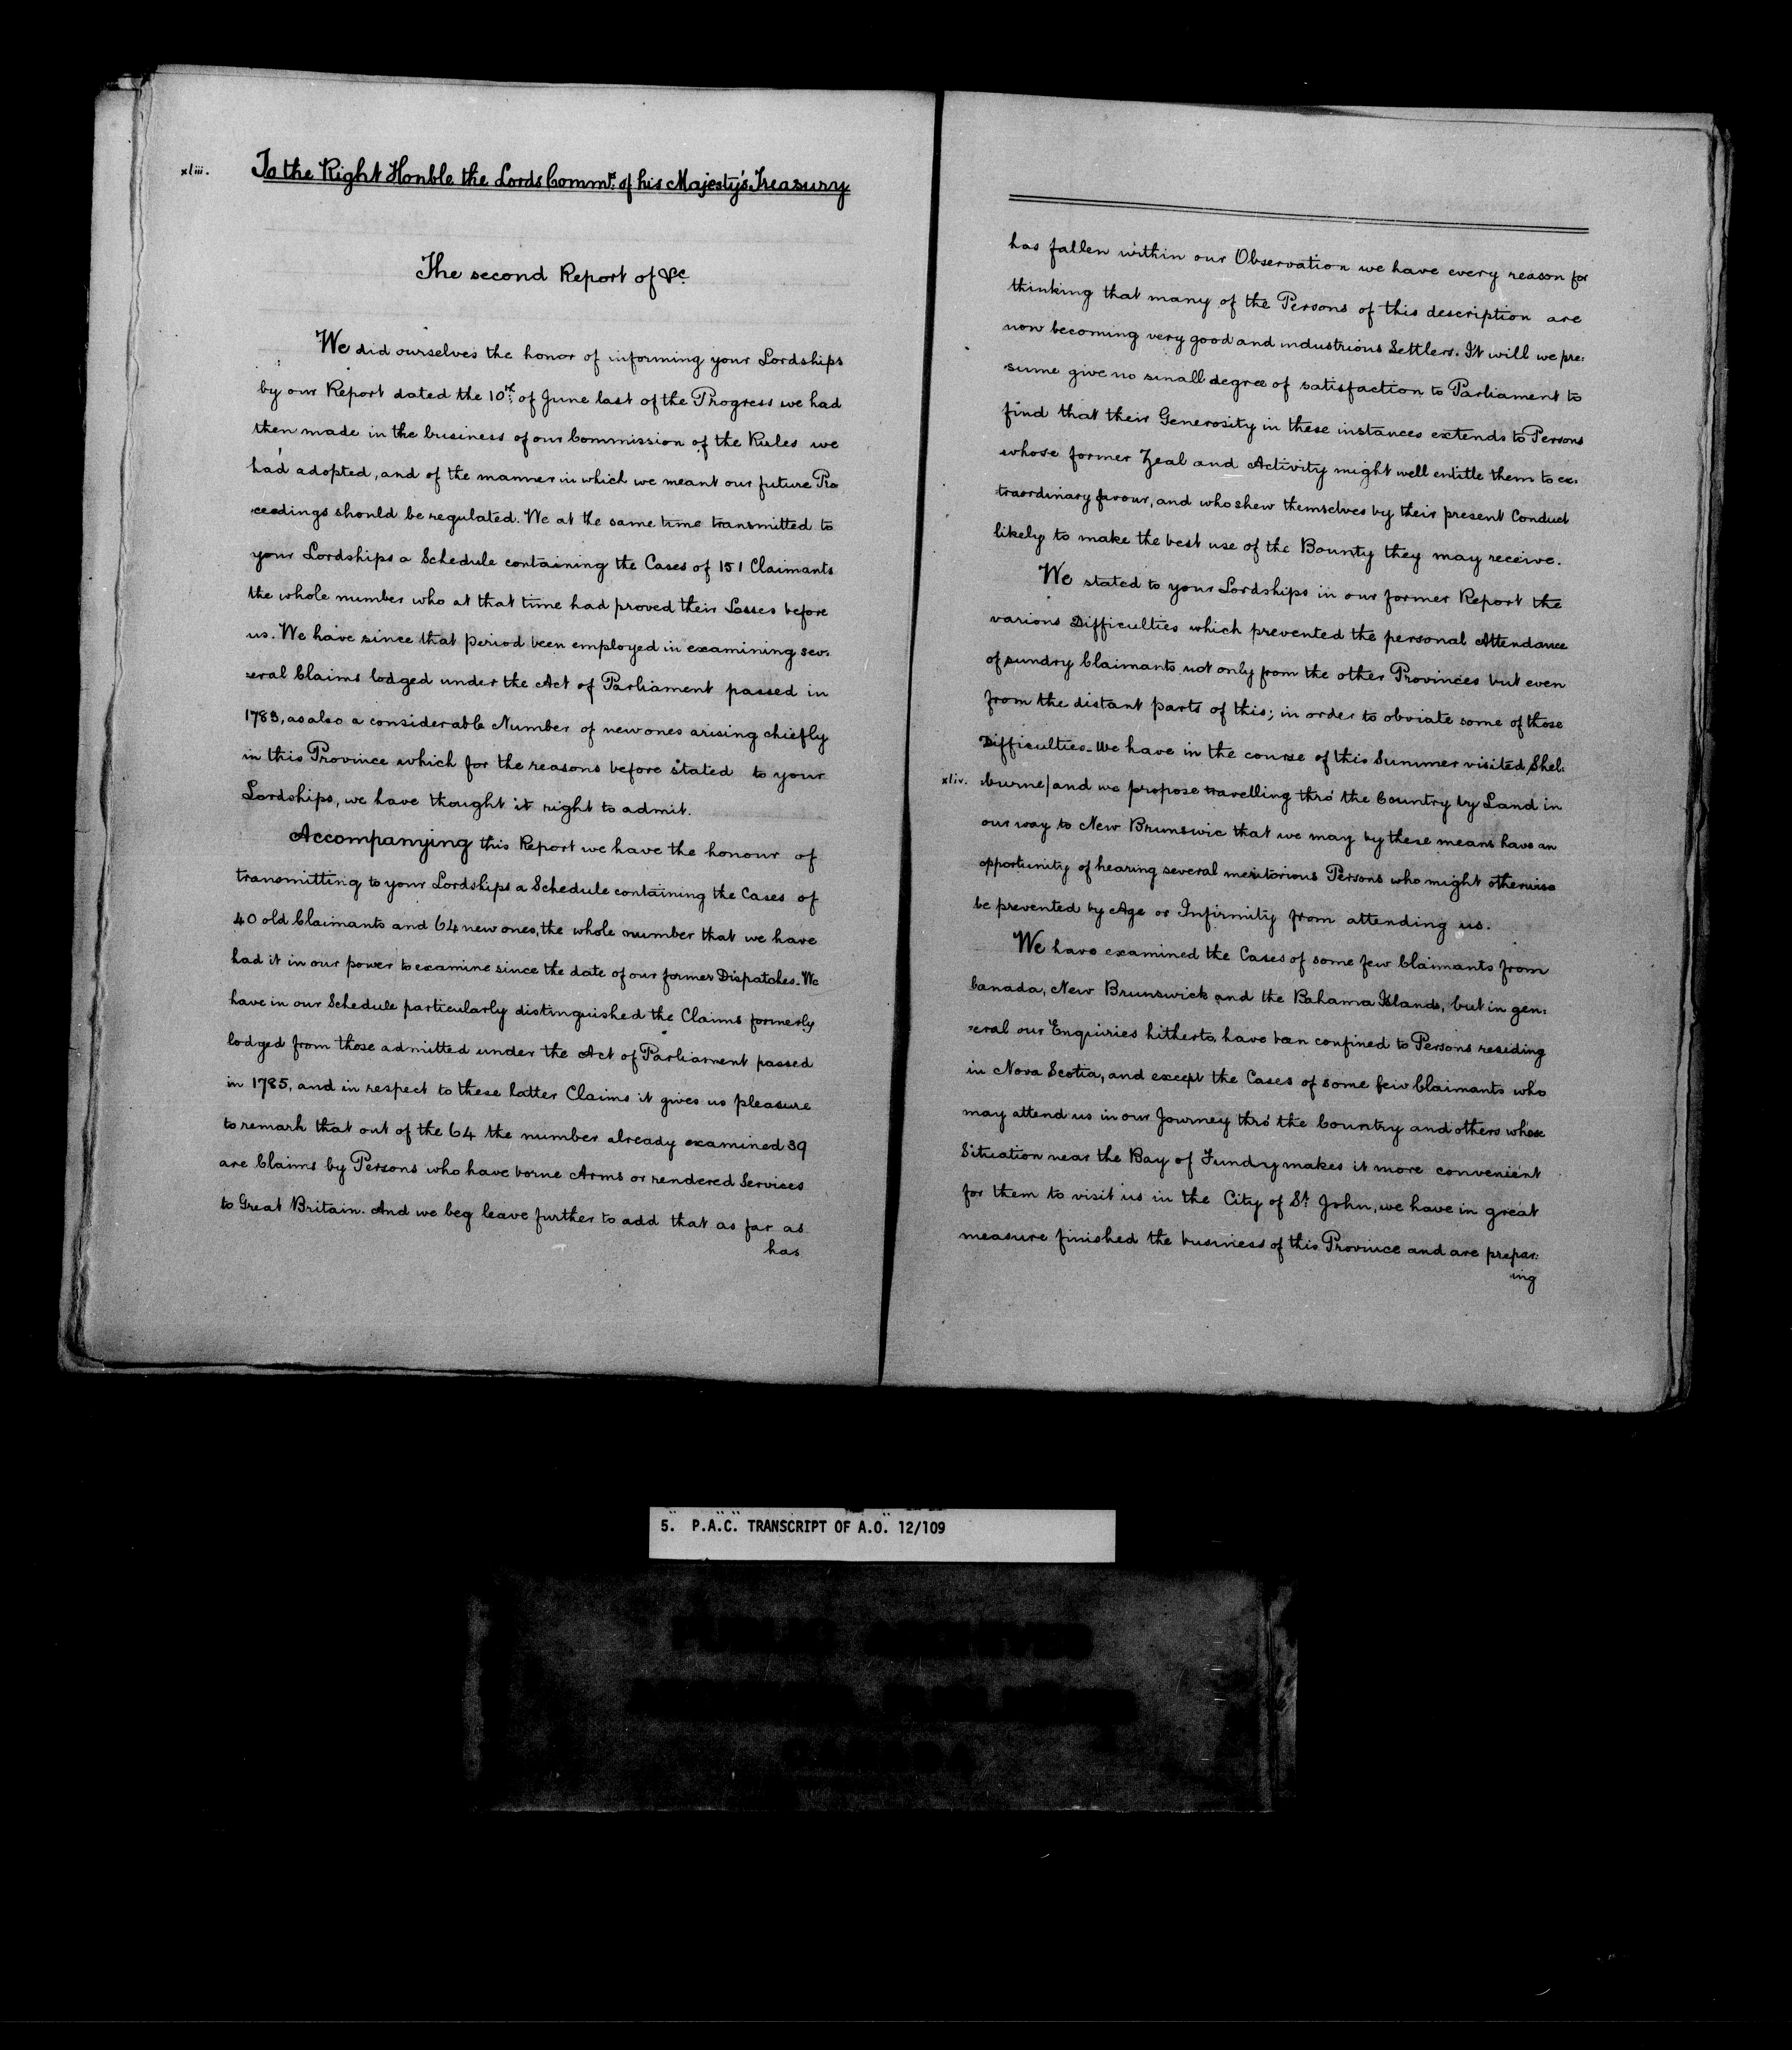 xliii.
To the Right Honble the Lords Commrs. of his Majesty's Treasury
The second Report of &c.
We did ourselves the honor of informing your Lordships
by our Report dated the 10th. of June last of the Progress we had
then made in the business of our Commission of the Rules we
had adopted, and of the manner in which we meant our future Pro
ceedings should be regulated. We at the same time transmitted to
your Lordships a Schedule containing the Cases of 151 Claimants
the whole number who at that time had proved their Losses before
us. We have since that period been employed in examining sev:
:eral Claims lodged under the Act of Parliament passed in
1783, as also a considerable Number of new ones arising chiefly
in this Province which for the reasons before stated to your
Lordships, we have thought it right to admit.
Accompanying this Report we have the honour of
transmitting to your Lordships a Schedule containing the Cases of
40 old Claimants and 64 new ones, the whole number that we have
had it in our power to examine since the date of our former Dispatches. We
have in our Schedule particularly distinguished the Claims formerly
lodged from those admitted under the Act of Parliament passed
in 1785, and in respect to these latter Claims it gives us pleasure
to remark that out of the 64 the number already examined 39
are Claims by Persons who have borne Arms or rendered Services
to Great Britain. And we beg leave further to add that as far as
has
has fallen within our Observation we have every reason for
thinking that many of the Persons of this description are
now becoming very good and industrious Settlers. It will we pre:
sume give no small degree of satisfaction to Parliament to
find that their Generosity in these instances extends to Persons
whose former Zeal and Activity might well entitle them to ex:
traordinary favour, and who shew themselves by their present Conduct
likely to make the best use of the Bounty they may receive.
We stated to your Lordships in our former Report the
various Difficulties which prevented the personal Attendance
of sundry Claimants not only from the other Provinces but even
from the distant parts of this; in order to obviate some of those
Difficulties_We have in the course of this Summer visited Shel:
xliv. :burne/and we propose travelling thro' the Country by Land in
our way to New Brunswic that we may by these means have an
opportunity of hearing several meritorious Persons who might otherwise
be prevented by Age or Infirmity from attending us.
We have examined the Cases of some few Claimants from
Canada, New Brunswick and the Bahama Islands, but in gen:
:eral our Enquiries hitherto, have been confined to Persons residing
in Nova Scotia, and except the Cases of some few Claimants who
may attend us in our Journey thro' the Country and others whose
Situation near the Bay of Fundry makes it more convenient
for them to visit us in the City of St. John, we have in great
measure finished the business of this Province and are prepar:
ing
5. P.A.C. TRANSCRIPT OF A.O. 12/109
PUBLIC ARCHIVES
CANADA